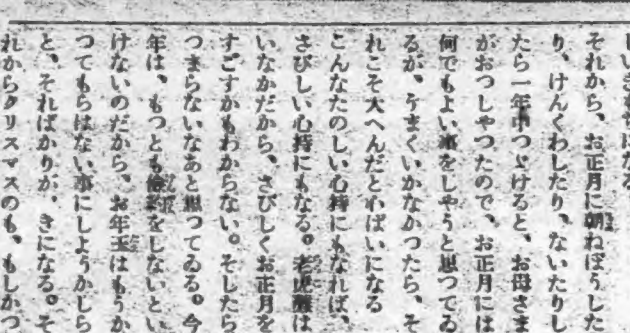 しいきもちになる
それから、お正月に朝ねばうした
り、けんくわしたり、ないたりし
たら一年中つゞけると、お母さま
がおつしやつたので、お正月には
何でもよい事をしやうと思つてゐ
るが、うまくいかなかつたら、そ
れこそ大へんだと心ぱいになる
こんなたのしい心持にもなれば、
さびしい心持にもなる。老虎灘は
いなかだから、さびしくお正月を
すごすかもわからない。そしたら
つまらないなあと思つてゐる。今
年は、もつとも儉約をしないとい
けないのだから、お年玉はもうか
つてもらはない事にしようかしら
と、そればかりが、きになる。そ
れからクリスマスのも、もしかつ